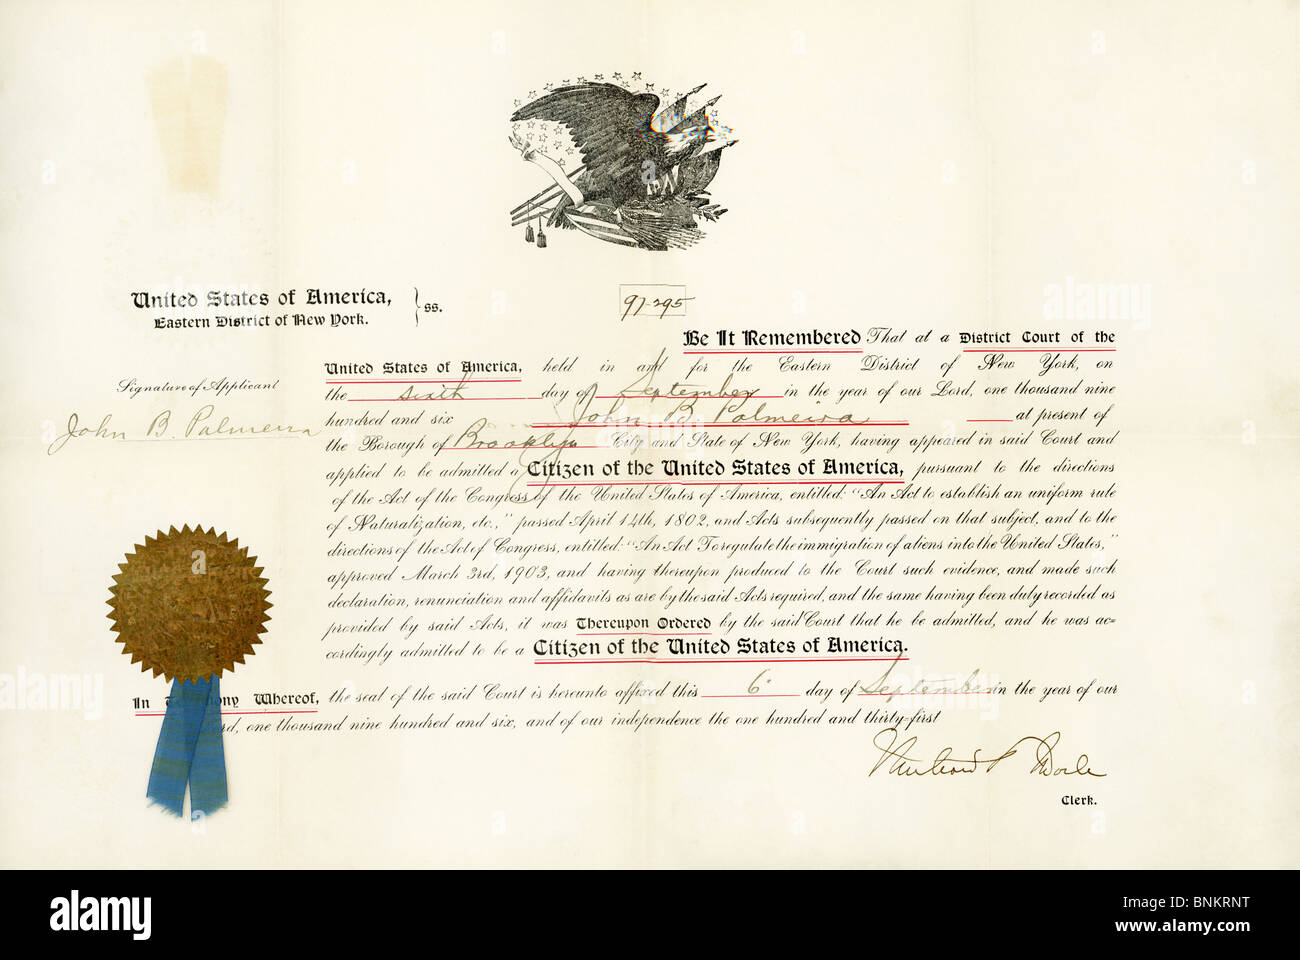 United States of America,
Eastern District of New York.
} ss.
97-295
Signature of Applicant
John B. Palmeira
Be It Remembered That at a District Court of the
United States of America, held in and for the Eastern District of New York, on
the sixth day of September in the year of our Lord, one thousand nine
hundred and six John B. Palmeira at present of
the Borough of Brooklyn City and State of New York, having appeared in said Court and
applied to be admitted a Citizen of the United States of America, pursuant to the directions
of the Act of the Congress of the United States of America, entitled: "An Act to establish an uniform rule
of Naturalization, etc.," passed April 14th, 1802, and Acts subsequently passed on that subject, and to the
directions of the Act of Congress, entitled: "An Act To regulate the immigration of aliens into the United States,"
approved March 3rd, 1903, and having thereupon produced to the Court such evidence, and made such
declaration, renunciation and affidavits as are by the said Acts required, and the same having been duly recorded as
provided by said Acts, it was Thereupon Ordered by the said Court that he be admitted, and he was ac=
cordingly admitted to be a Citizen of the United States of America.
In Te ony Whereof, the seal of the said Court is hereunto affixed this 6" day of September in the year of our
rd, one thousand nine hundred and six, and of our independence the one hundred and thirty=first
Clerk.
alamy
Image ID: BNKRNT
www.alamy.com